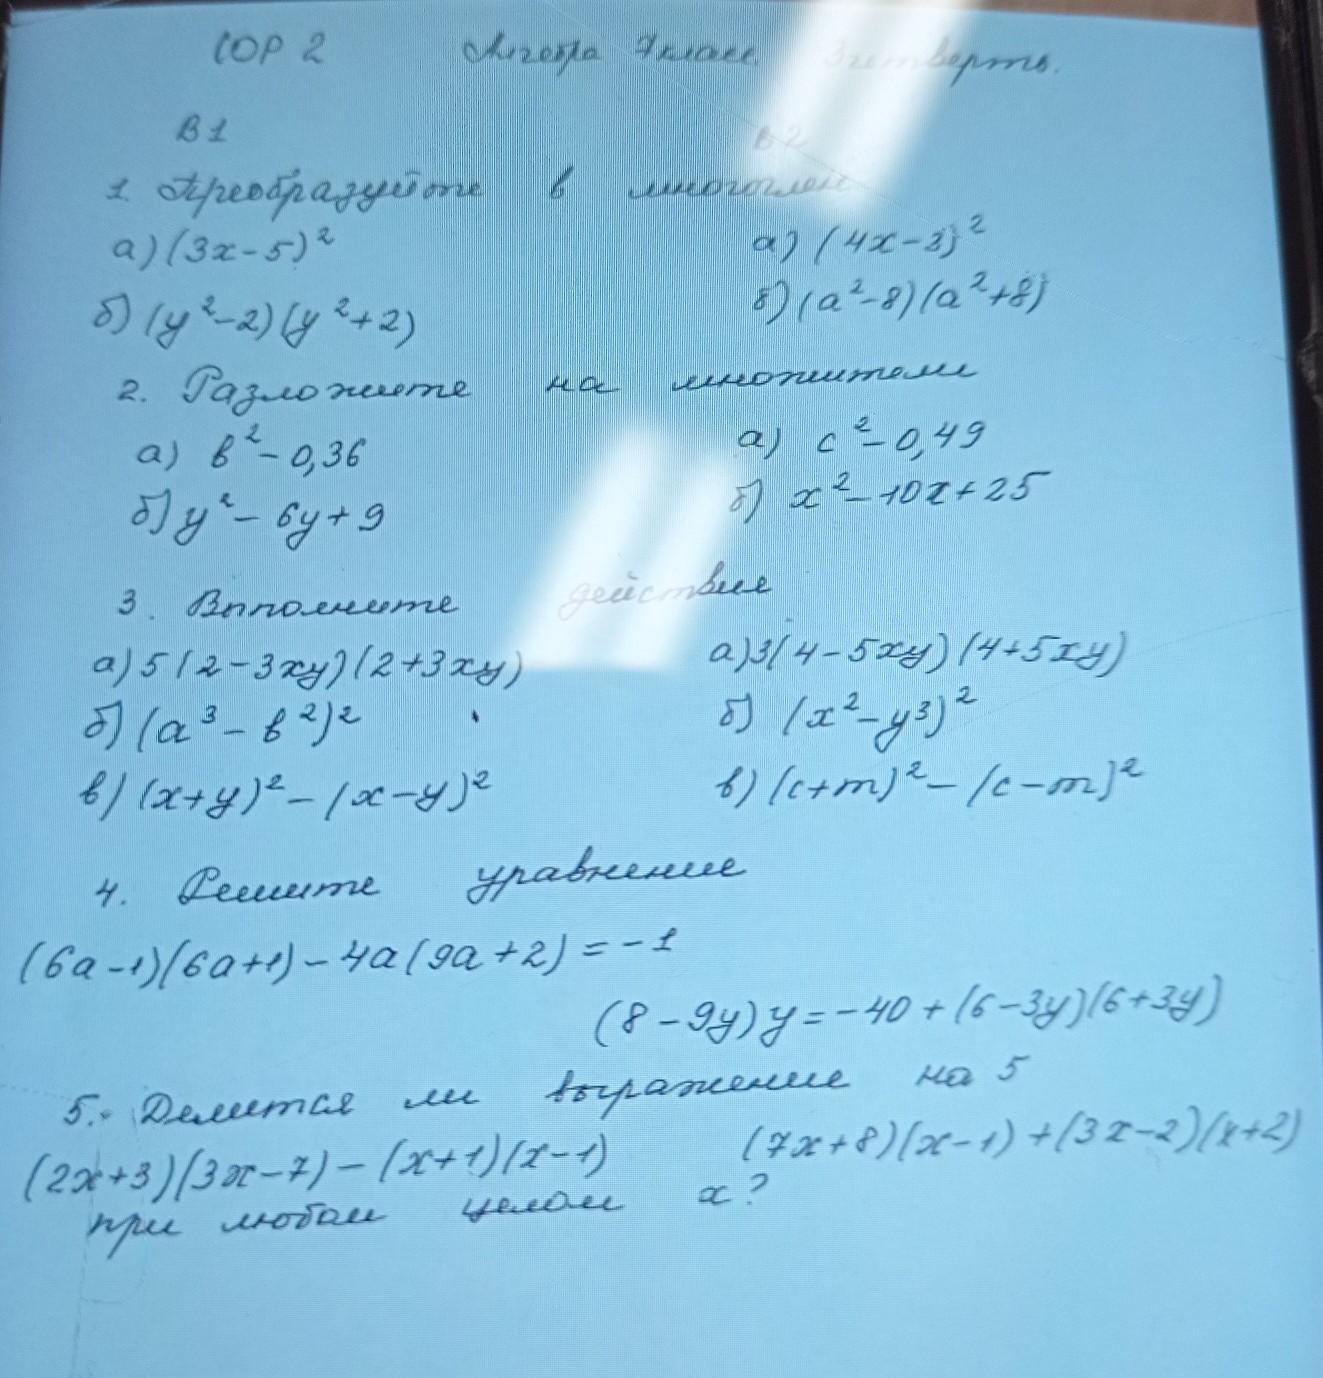 СОР 2 Алгебра 7 класс 3 четверть.
В 1 В 2
1. Преобразуйте в многочлен
а) (3x-5)² а) (4x-3)²
б) (y²-2)(y²+2) б) (a²-8)(a²+8)
2. Разложите на множители
а) b²-0,36 а) c²-0,49
б) y²-6y+9 б) x²-10x+25
3. Выполните действие
а) 5(2-3xy)(2+3xy) а) 3(4-5xy)(4+5xy)
б) (a³-b²)² б) (x²-y³)²
в) (x+y)²-(x-y)² в) (c+m)²-(c-m)²
4. Решите уравнение
(6a-1)(6a+1)-4a(9a+2)=-1
(8-9y)y=-40+(6-3y)(6+3y)
5. Делится ли выражение на 5
(2x+3)(3x-7)-(x+1)(x-1) (7x+8)(x-1)+(3x-2)(x+2)
при любом целом x?